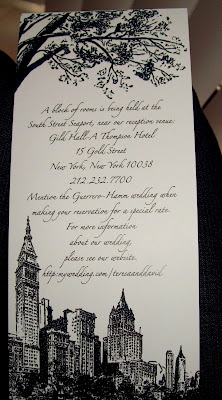 A block of rooms is being held at the
South Street Seaport, near our reception venue.
Gild Hall-A Thompson Hotel
15 Gold Street
New York, New York 10038
212-232-7700
Mention the Guerrero-Hamm wedding when
making your reservation for a special rate.
For more information
about our wedding,
please see our website.
http:mywedding.com/teresaanddavid